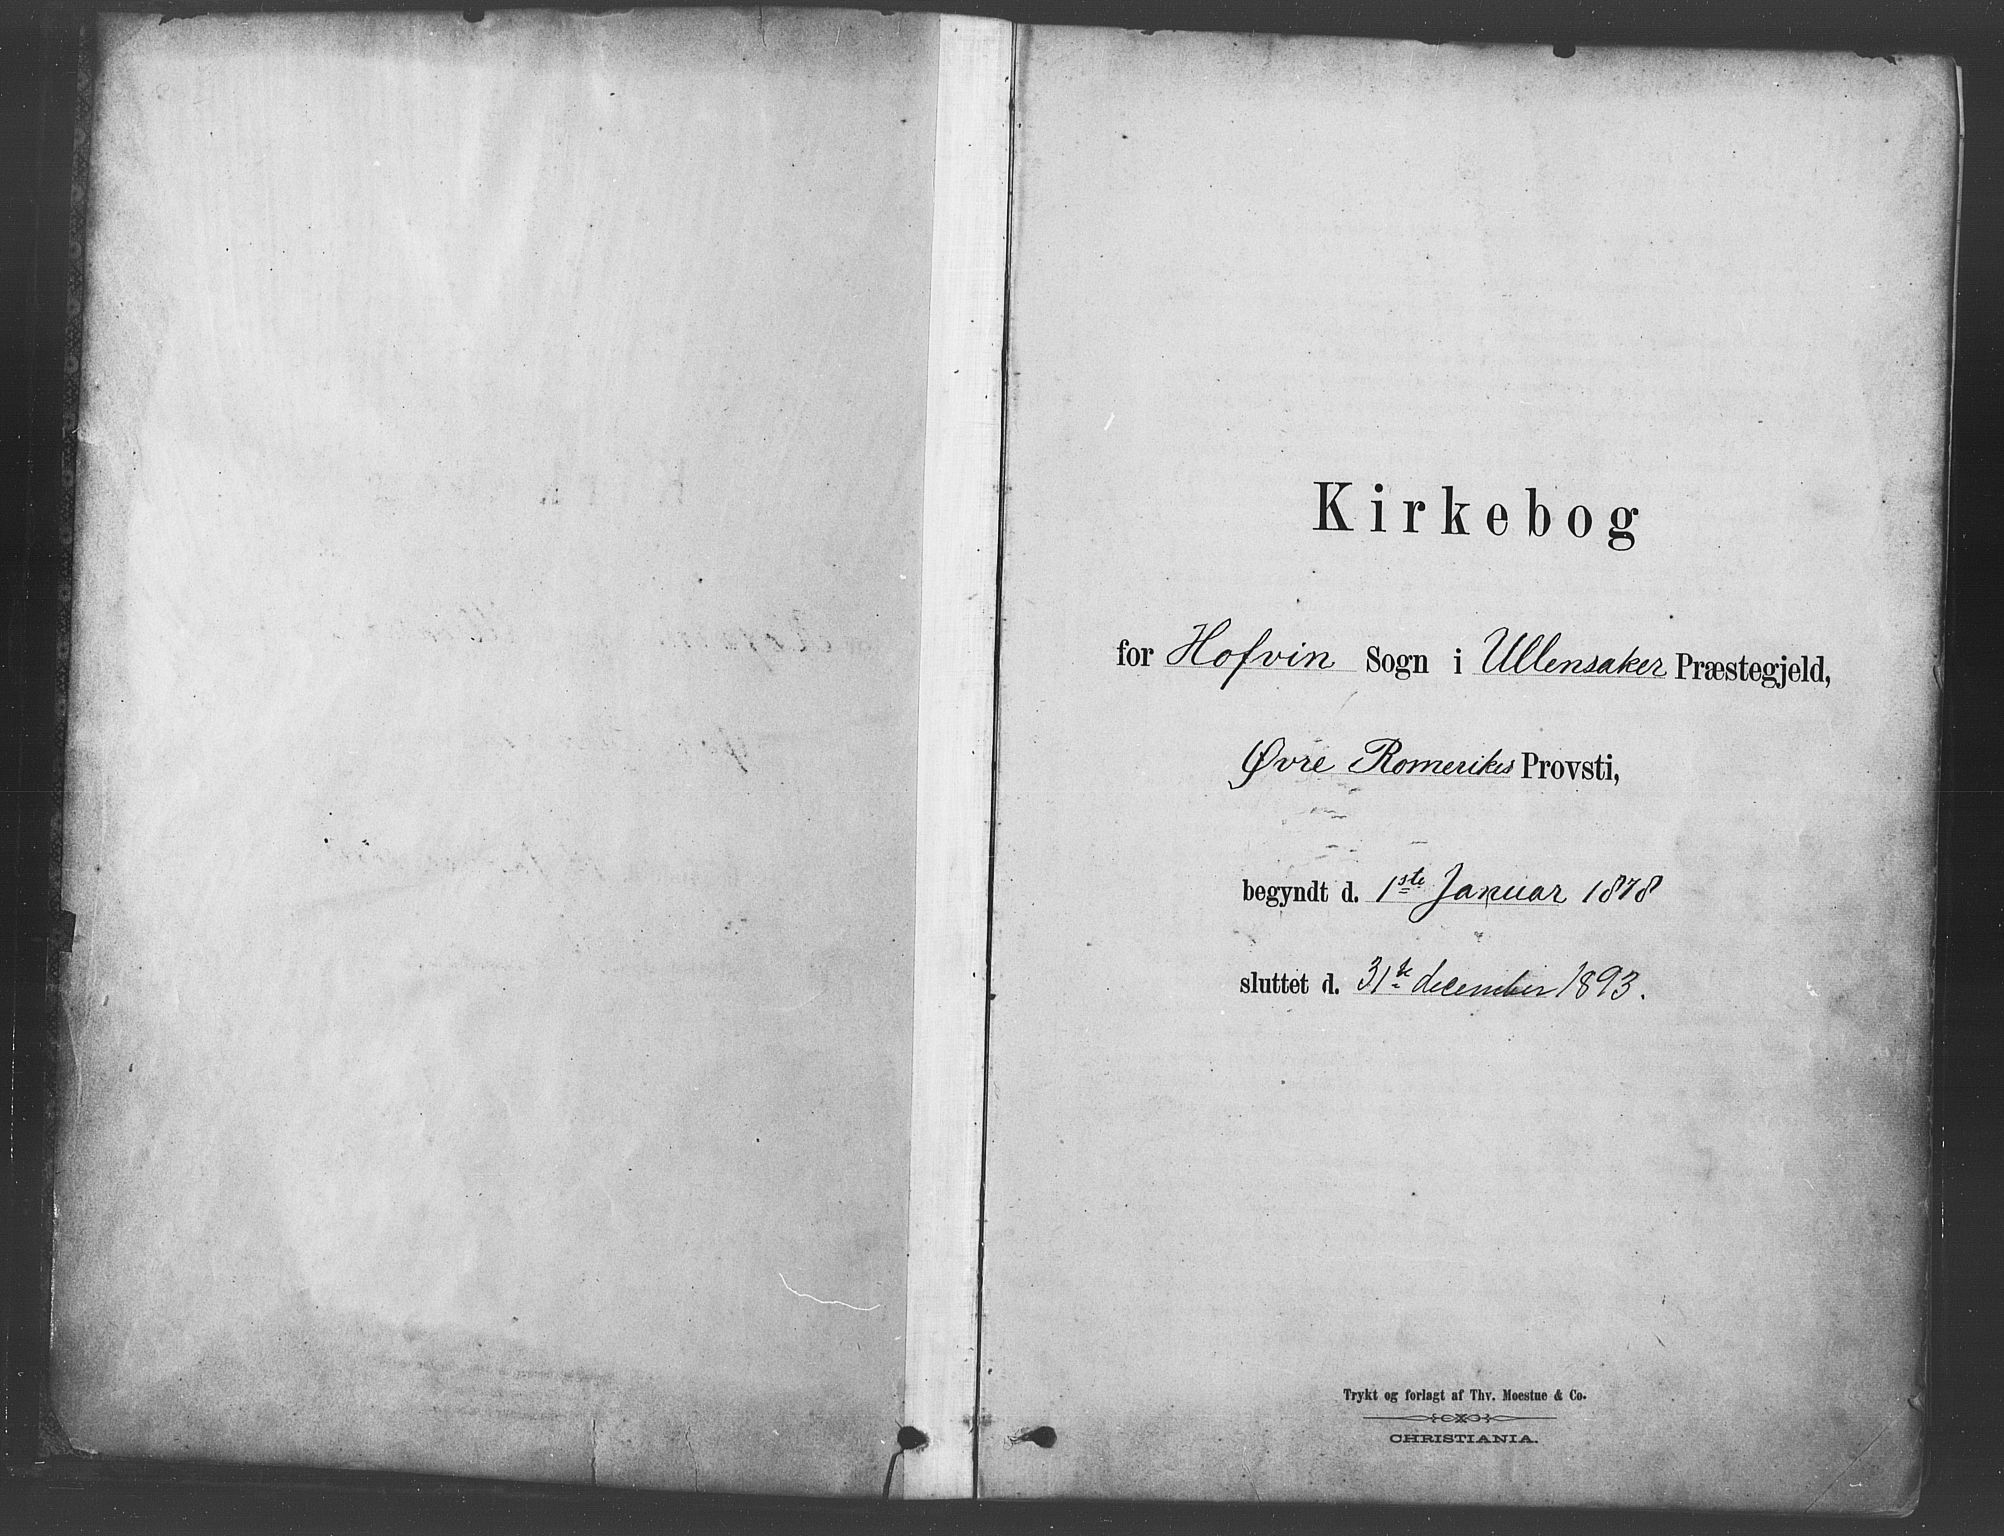 Kirkebog
for Hofvin Sogn i Ullensaker Præstegjeld,
Øvre Romerikes Provsti,
begyndt d. 1ste Januar 1878
sluttet d. 31te december 1893.
Trykt og forlagt af Thv. Moestue & Co.
CHRISTIANIA.